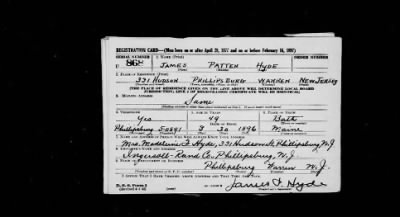 REGISTRATION CARD—(Men born on or after April 28, 1877 and on or before February 16, 1897)
SERIAL NUMBER 1. NAME (Print) ORDER NUMBER
U 868 JAMES PATTEN HYDE
2. PLACE OF RESIDENCE (Print)
331 HUDSON PHILLIPSBURG WARREN NEW JERSEY
[THE PLACE OF RESIDENCE GIVEN ON THE LINE ABOVE WILL DETERMINE LOCAL BOARD
JURISDICTION; LINE 2 OF REGISTRATION CERTIFICATE WILL BE IDENTICAL]
3. MAILING ADDRESS
Same
4. TELEPHONE 5. AGE IN YEARS 6. PLACE OF BIRTH
Yes 49 Bath
Phillipsburg 50891 3 30 1896 Maine
7. NAME AND ADDRESS OF PERSON WHO WILL ALWAYS KNOW YOUR ADDRESS
Mrs. Madeline F. Hyde, 331 Hudson St Phillipsburg N.J.
8. EMPLOYER'S NAME AND ADDRESS
Ingersoll-Rand Co. Phillipsburg, N.J.
9. PLACE OF EMPLOYMENT OR BUSINESS
Phillipsburg Warren N.J.
I AFFIRM THAT I HAVE VERIFIED ABOVE ANSWERS AND THAT THEY ARE TRUE.
James P. Hyde